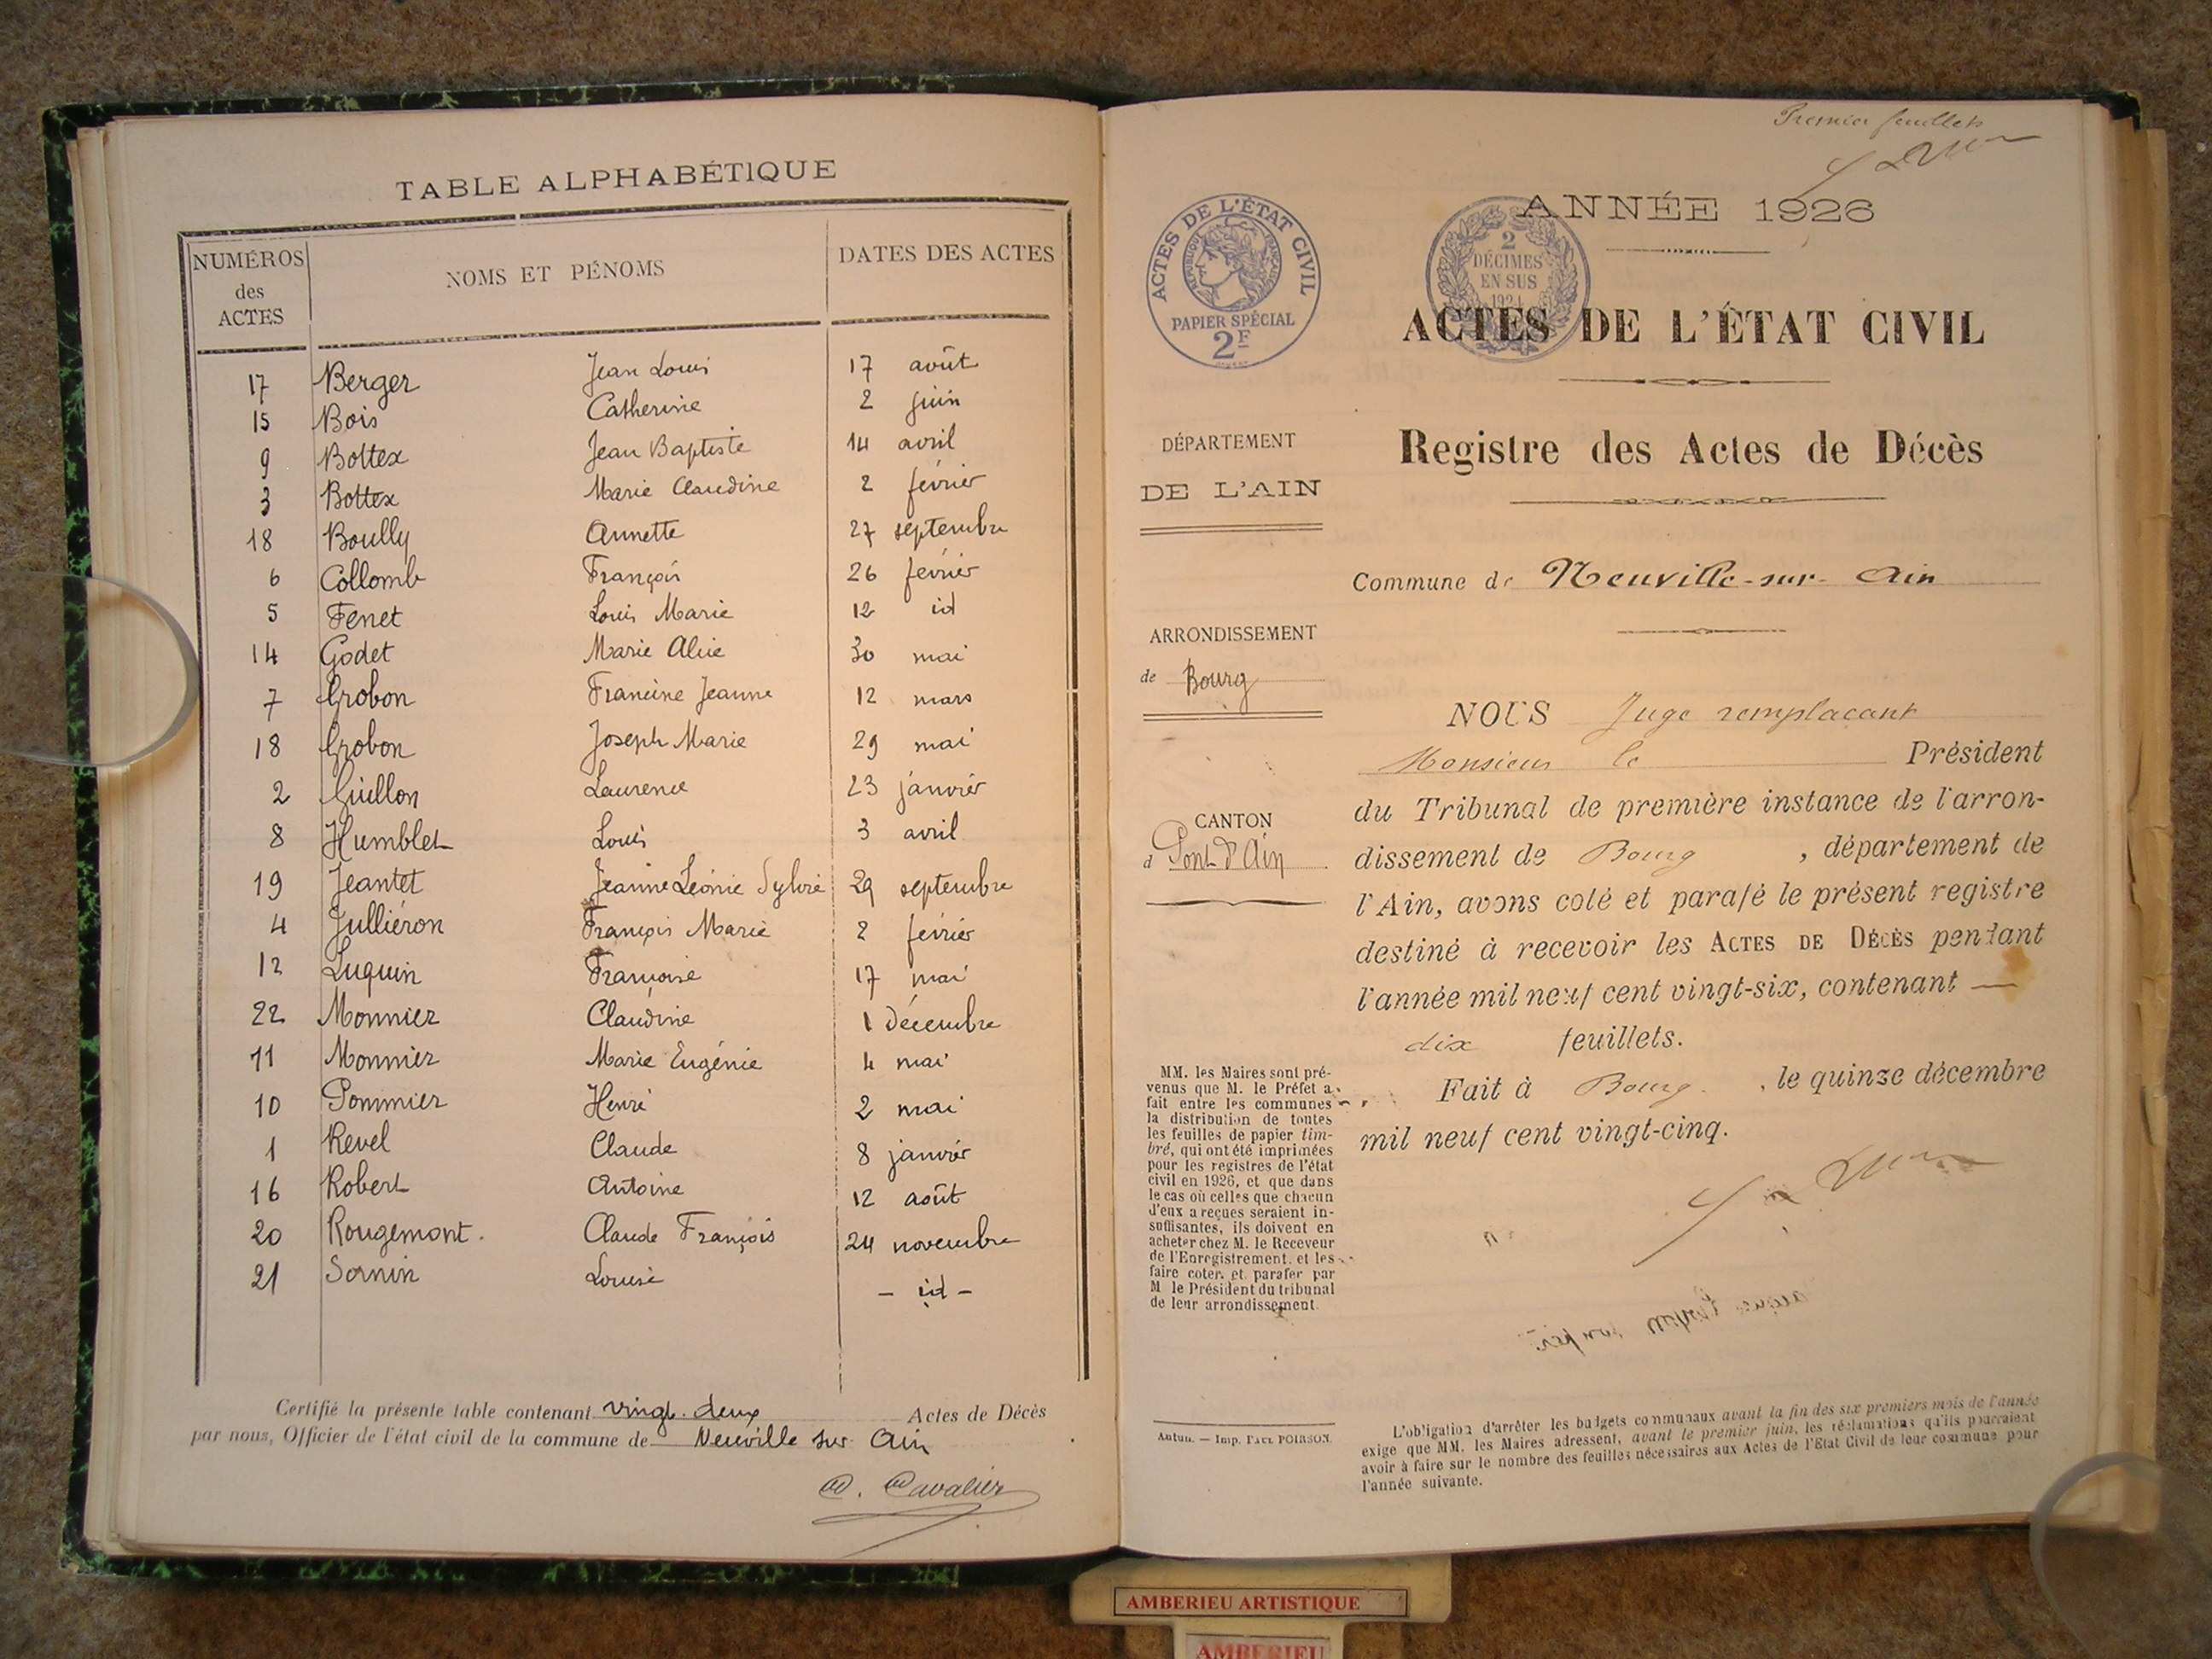 TABLE ALPHABÉTIQUE
NUMÉROS des ACTES
NOMS ET PÉNOMS
DATES DES ACTES
17 Berger Jean Louis 17 août
15 Bois Catherine 2 juin
9 Bottex Jean Baptiste 14 avril
3 Bottex Marie Claudine 2 février
18 Boully Annette 27 septembre
6 Collomb François 26 février
5 Fenet Louis Marie 12 id
14 Godet Marie Alice 30 mai
7 Grobon Francine Jeanne 12 mars
18 Grobon Joseph Marie 29 mai
2 Guillon Laurence 23 janvier
8 Humblet Louis 3 avril
19 Jeantet Jeanne Léonie Sylvie 29 septembre
4 Julliéron François Marie 2 février
12 Luquin Françoise 17 mai
22 Monnier Claudine 1 décembre
11 Monnier Marie Eugénie 4 mai
10 Pommier Henri 2 mai
1 Revel Claude 8 janvier
16 Robert Antoine 12 août
20 Rougemont. Claude François 24 novembre
21 Sornin Louise – id –
Certifié la présente table contenant vingt-deux Actes de Décès
par nous, Officier de l'état civil de la commune de Neuville sur Ain
Cavalier
Premier feuillet
ANNÉE 1926
ACTES DE L'ÉTAT CIVIL
RÉPUBLIQUE FRANÇAISE
PAPIER SPÉCIAL
2F
2
DÉCIMES
EN SUS
1924
ACTES DE L'ÉTAT CIVIL
Registre des Actes de Décès
Commune de Neuville-sur-Ain
DÉPARTEMENT
DE L'AIN
ARRONDISSEMENT
de Bourg
CANTON
d Pont d'Ain
NOUS Juge remplaçant
Monsieur le Président
du Tribunal de première instance de l'arron-
dissement de Bourg, département de
l'Ain, avons coté et parafé le présent registre
destiné à recevoir les ACTES DE DÉCÈS pendant
l'année mil neuf cent vingt-six, contenant —
dix feuillets.
Fait à Bourg, le quinze décembre
mil neuf cent vingt-cinq.
MM. les Maires sont pré-
venus que M. le Préfet a
fait entre les communes
la distribution de toutes
les feuilles de papier tim-
bré, qui ont été imprimées
pour les registres de l'état
civil en 1926, et que dans
le cas où celles que chacun
d'eux a reçues seraient in-
suffisantes, ils doivent en
acheter chez M. le Receveur
de l'Enregistrement, et les
faire coter, et parafer par
M le Président du tribunal
de leur arrondissement.
Autun. — Imp. PAUL POIRSON.
L'obligation d'arrêter les budgets communaux avant la fin des six premiers mois de l'année
exige que MM. les Maires adressent, avant le premier juin, les réclamations qu'ils pourraient
avoir à faire sur le nombre des feuilles nécessaires aux Actes de l'Etat Civil de leur commune pour
l'année suivante.
AMBERIEU ARTISTIQUE
AMBERIEU